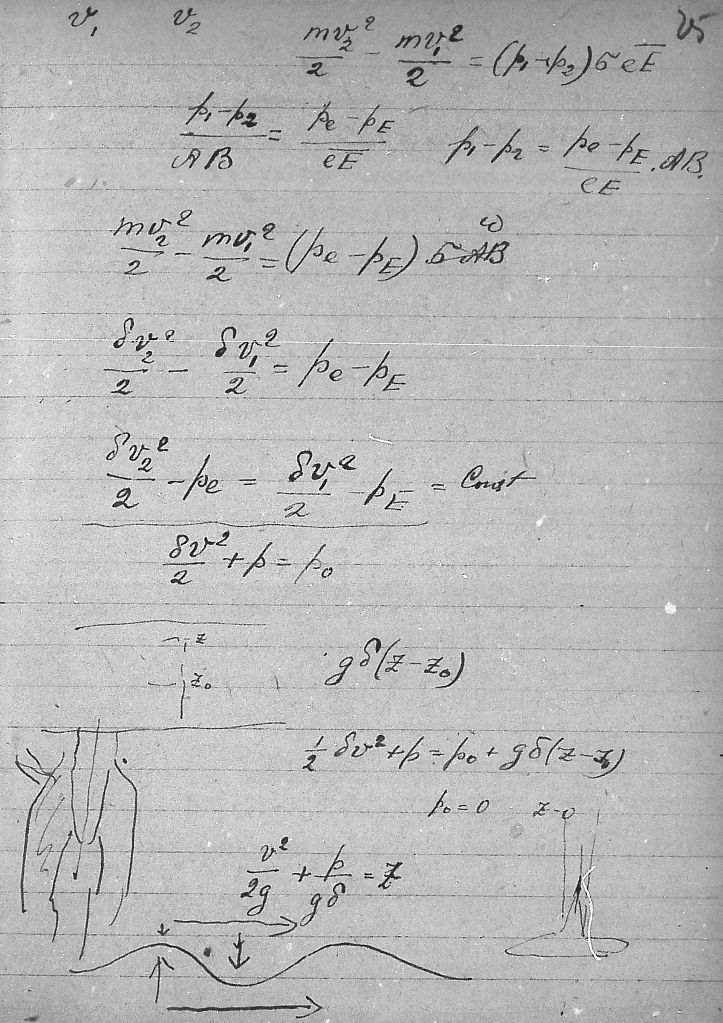 v₁ v₂ 25
mv₂²/2 - mv₁²/2 = (p₁-p₂) σ eE
(p₁-p₂)/AB = (pe-pE)/eE p₁-p₂ = (pe-pE)/eE . AB.
ω
mv₂²/2 - mv₁²/2 = (pe-pE) σ AB
δv₂²/2 - δv₁²/2 = pe-pE
δv₂²/2 - pe = δv₁²/2 - pE = Const
δv²/2 + p = p₀
z
z₀ gδ(z-z₀)
½ δv² + p = p₀ + gδ(z-z₀)
p₀ = 0 z-0
v²/2g + p/gδ = z